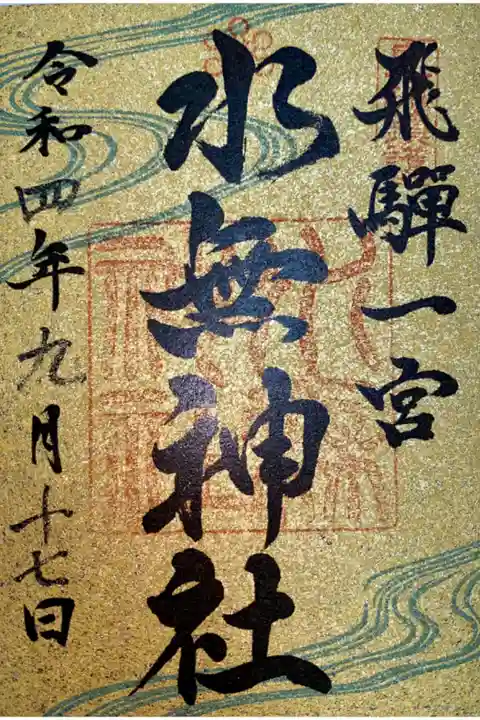 飛驒一宮
水無神社
令和四年九月十七日